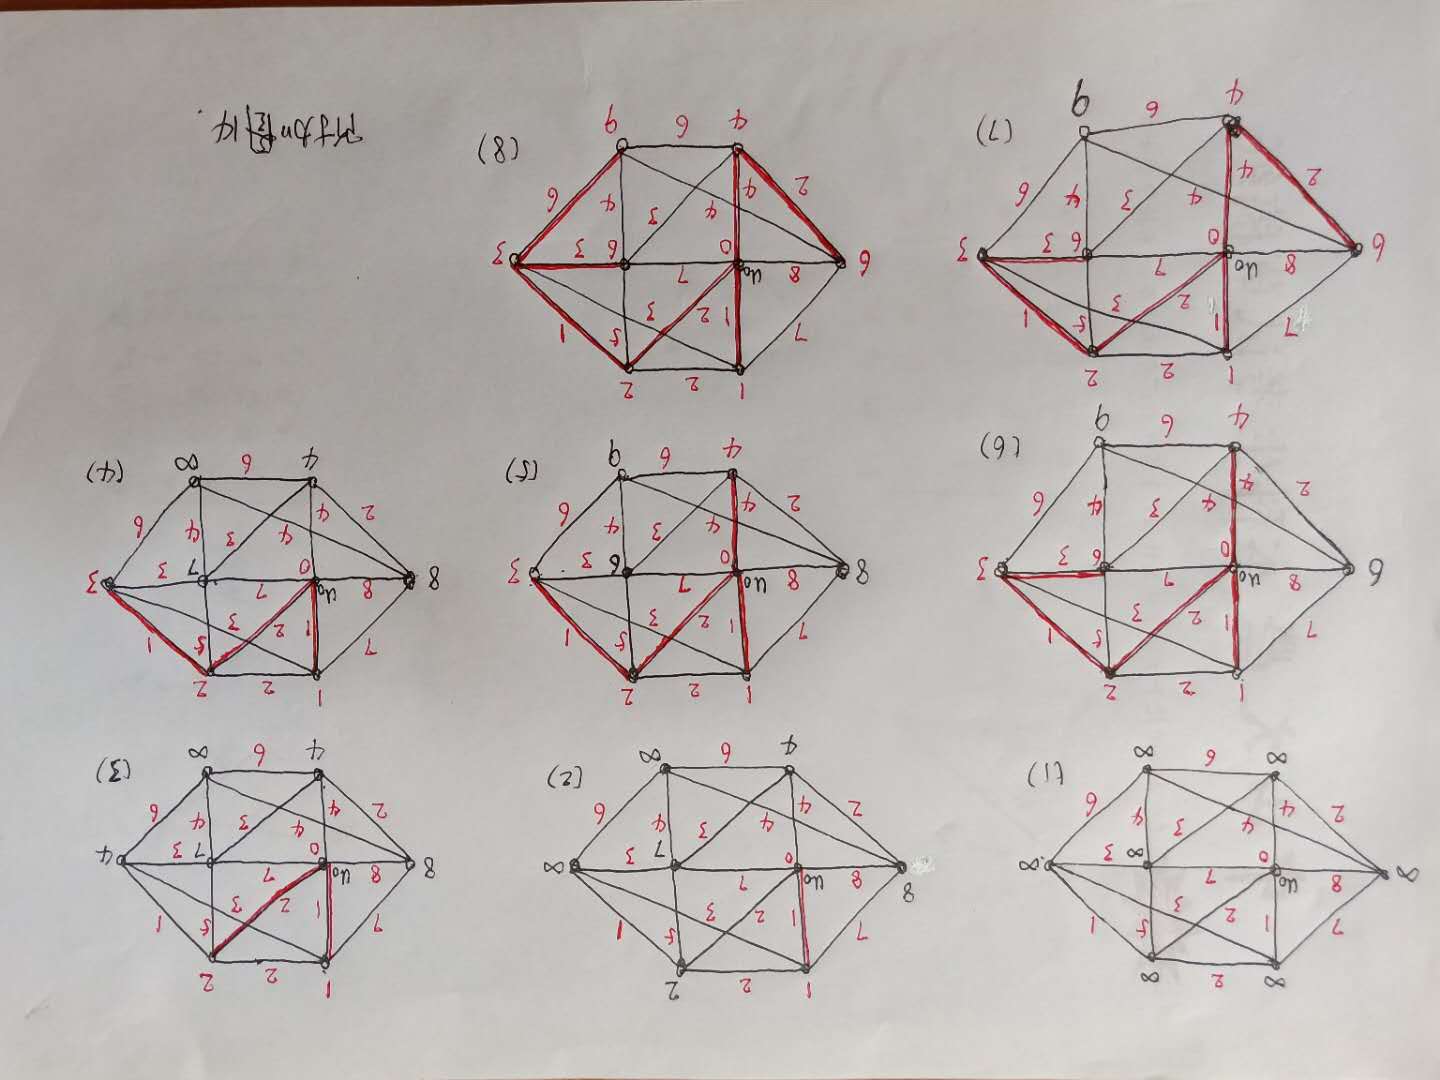 ∞ 2 ∞
7 1 2 5 3 1
∞ 8 u₀ 0 7 ∞ 3 ∞
2 4 4 3 4 6
∞ 6 ∞ (1)
1 2 2
7 1 2 3 5 1
8 8 u₀ 0 7 7 3 ∞
2 4 4 3 4 6
4 6 ∞ (2)
1 2 2
7 1 2 3 5 1
8 8 u₀ 0 7 7 3 4
2 4 4 3 4 6
4 6 ∞ (3)
1 2 2
7 1 2 3 5 1
6 8 u₀ 0 7 6 3 3
2 4 4 3 4 6
4 6 9 (6)
1 2 2
7 1 2 3 5 1
8 8 u₀ 0 7 6 3 3
2 4 4 3 4 6
4 6 9 (5)
1 2 2
7 1 2 3 5 1
8 8 u₀ 0 7 7 3 3
2 4 4 3 4 6
4 6 ∞ (4)
1 2 2
7 1 2 3 5 1
6 8 u₀ 0 7 6 3 3
2 4 4 3 4 6
4 6 9 (7)
1 2 2
7 1 2 3 5 1
6 8 u₀ 0 7 6 3 3
2 4 4 3 4 6
4 6 9 (8)
附加图14.